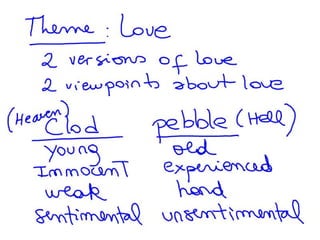 Theme: Love
2 versions of love
2 viewpoints about love
(Heaven) Clod pebble (Hell)
young old
Immocent experienced
weak hard
sentimental unsentimental